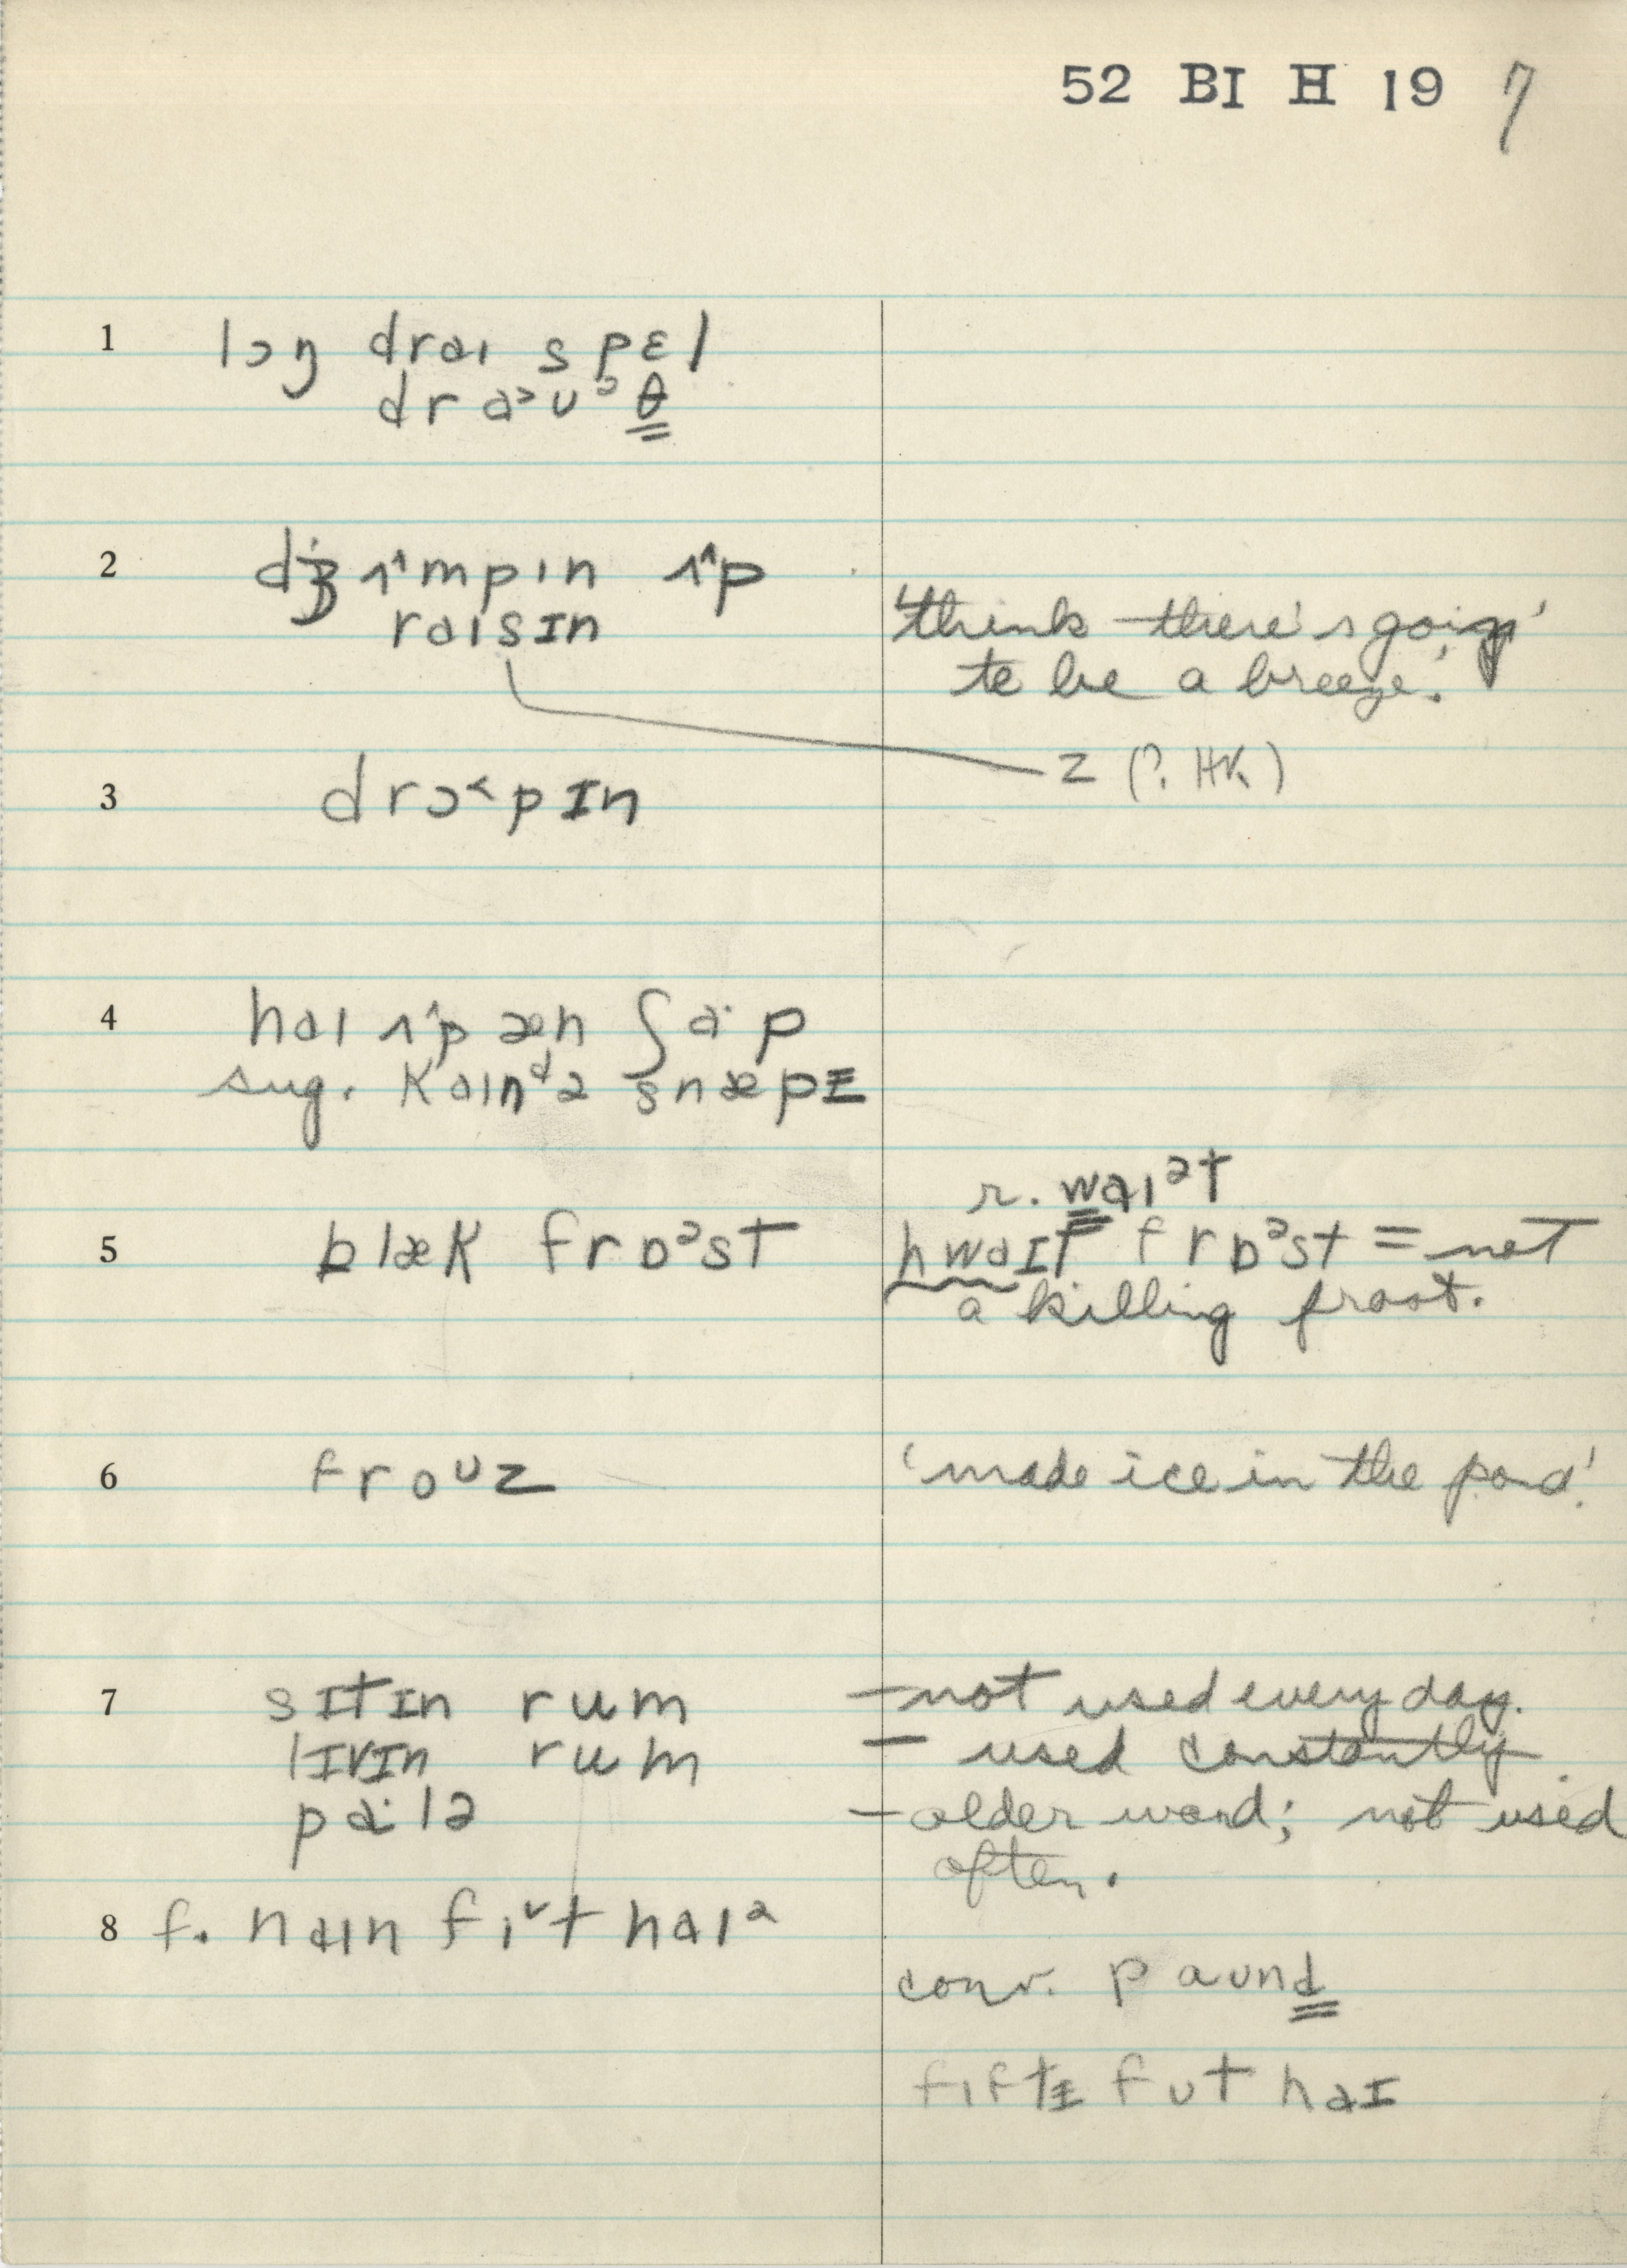 52 BI H 19 7
1 lɔŋ draɪ spɛl
dra˃ʊᵓθ
2 dʒʌ^mpɪn ʌ^p
raɪsɪn
'think there's going'
to be a breeze.'
z (?. HK)
3 drɔ˂pɪn
4 haɪ ʌ^p æn ʃa·p
sug. kaɪnᵈə snæpɪ
r. waɪᵊt
5 blæk frɒᵊst
hwaɪt frɒᵊst = not
a killing frost.
6 froᶷz
'made ice in the pond'.
7 sɪtɪn rum – not used every day.
lɪvɪn rum – used constantly.
pa·lə – older word; not used
often.
8 f. naɪn fiᵛt haɪᵊ
conv. paʊnd
fɪftɪ fʊt haɪ